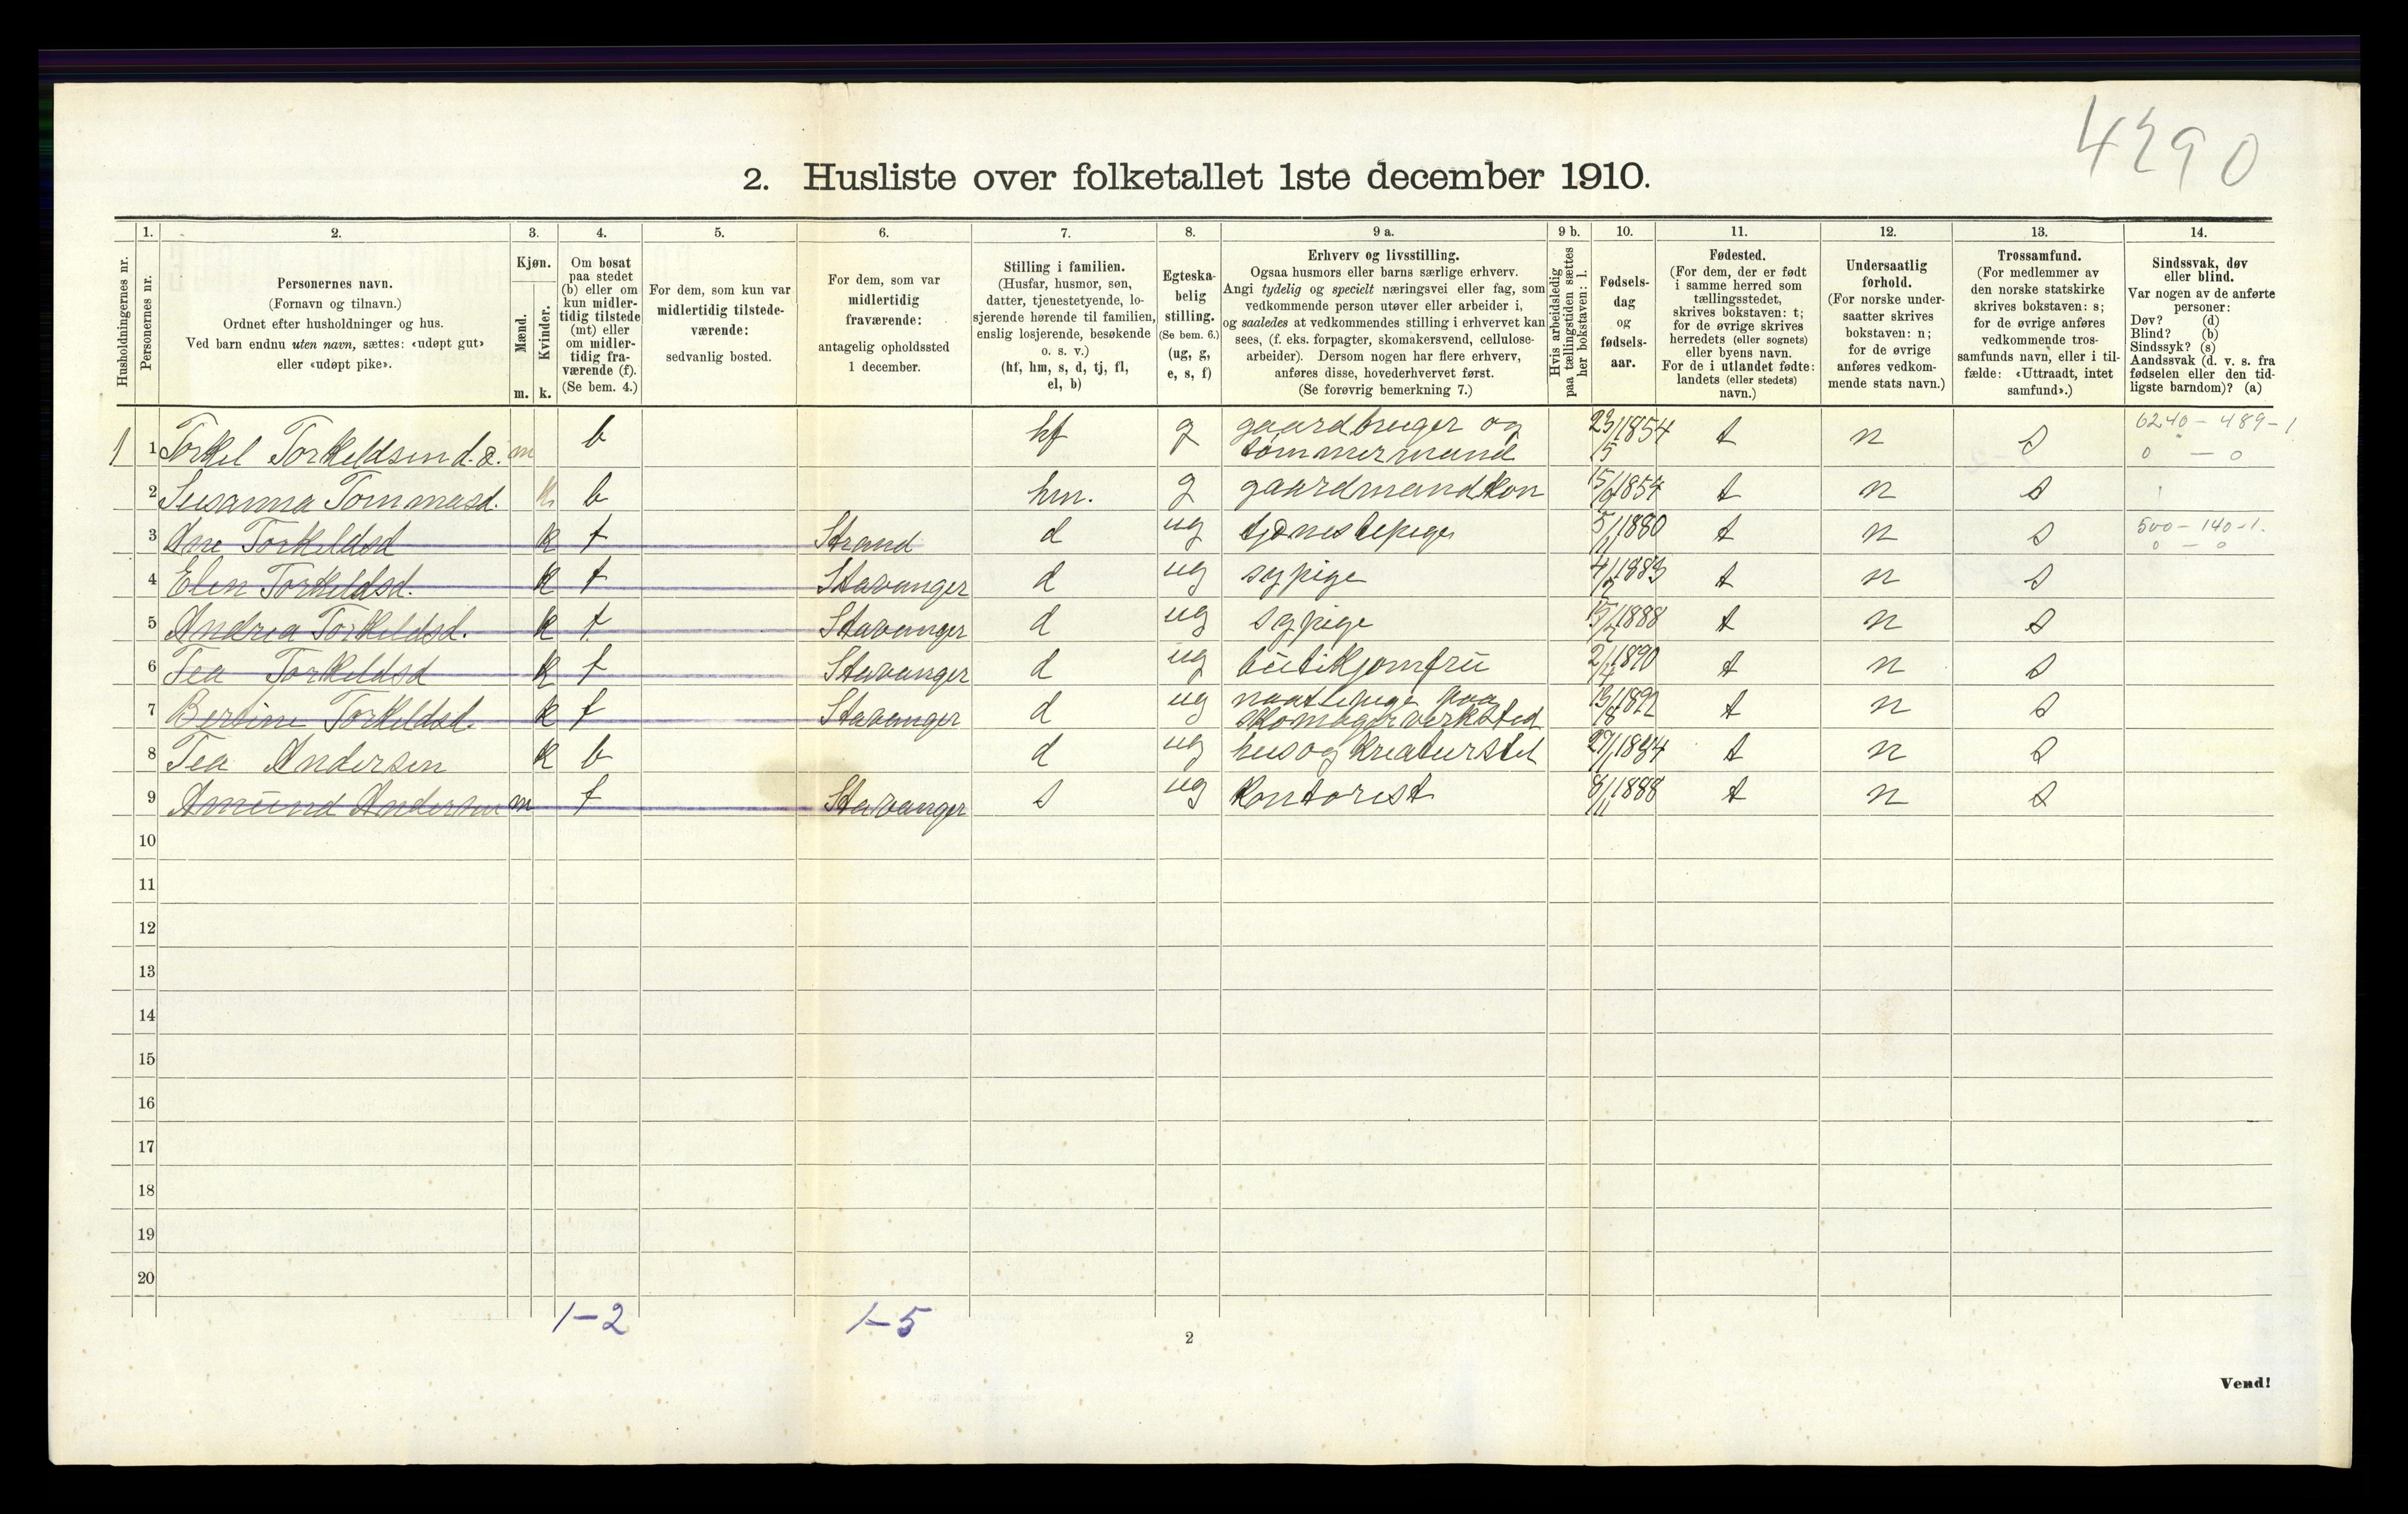 4290
2. Husliste over folketallet 1ste december 1910.
Husholdningernes nr.
1.
Personernes nr.
2.
Personernes navn.
(Fornavn og tilnavn.)
Ordnet efter husholdninger og hus.
Ved barn endnu uten navn, sættes: «udøpt gut»
eller «udøpt pike».
3.
Kjøn.
Mænd.
Kvinder.
m. k.
4.
Om bosat
paa stedet
(b) eller om
kun midler-
tidig tilstede
(mt) eller
om midler-
tidig fra-
værende (f).
(Se bem. 4.)
5.
For dem, som kun var
midlertidig tilstede-
værende:
sedvanlig bosted.
6.
For dem, som var
midlertidig
fraværende:
antagelig opholdssted
1 december.
7.
Stilling i familien.
(Husfar, husmor, søn,
datter, tjenestetyende, lo-
sjerende hørende til familien,
enslig losjerende, besøkende
o. s. v.)
(hf, hm, s, d, tj, fl,
el, b)
8.
Egteska-
belig
stilling.
(Se bem. 6.)
(ug, g,
e, s, f)
9 a.
Erhverv og livsstilling.
Ogsaa husmors eller barns særlige erhverv.
Angi tydelig og specielt næringsvei eller fag, som
vedkommende person utøver eller arbeider i,
og saaledes at vedkommendes stilling i erhvervet kan
sees, (f. eks. forpagter, skomakersvend, cellulose-
arbeider). Dersom nogen har flere erhverv,
anføres disse, hovederhvervet først.
(Se forøvrig bemerkning 7.)
9 b.
Hvis arbeidsledig
paa tællingstiden sættes
her bokstaven: l.
10.
Fødsels-
dag
og
fødsels-
aar.
11.
Fødested.
(For dem, der er født
i samme herred som
tællingsstedet,
skrives bokstaven: t;
for de øvrige skrives
herredets (eller sognets)
eller byens navn.
For de i utlandet fødte:
landets (eller stedets)
navn.)
12.
Undersaatlig
forhold.
(For norske under-
saatter skrives
bokstaven: n;
for de øvrige
anføres vedkom-
mende stats navn.)
13.
Trossamfund.
(For medlemmer av
den norske statskirke
skrives bokstaven: s;
for de øvrige anføres
vedkommende tros-
samfunds navn, eller i til-
fælde: «Uttraadt, intet
samfund».)
14.
Sindssvak, døv
eller blind.
Var nogen av de anførte
personer:
Døv? (d)
Blind? (b)
Sindssyk? (s)
Aandssvak (d. v. s. fra
fødselen eller den tid-
ligste barndom)? (a)
1 1 Torkel Torkeldsen d.æ. m b hf g gaardbruger og tømmermand 23/5 1854 t n s 6240 – 489 – 1
0 – 0
2 Susanna Tommasd. k b hm. g gaardmandkon 1854 t n s
3 Ane Torkeldsd k f Strand d ug tjenestepige 1880 t n s 500 – 140 – 1.
0 – 0
4 Elen Torkeldsd. k f Stavanger d ug sypige 1883 t n s
5 Andrea Torkeldsd. k f Stavanger d ug sypige 1888 t n s
6 Tea Torkeldsd k f Stavanger d ug butikjomfru 1890 t n s
7 Bertine Torkeldsd. k f Stavanger d ug paa skomagerverksted 1892 t n s
8 Tea Andersen k b d ug hus og kreaturstel t n s
9 Amund Andersen m f Stavanger s ug kontorist 1888 t n s
10
11
12
13
14
15
16
17
18
19
20
1–2 1–5
2
Vend!